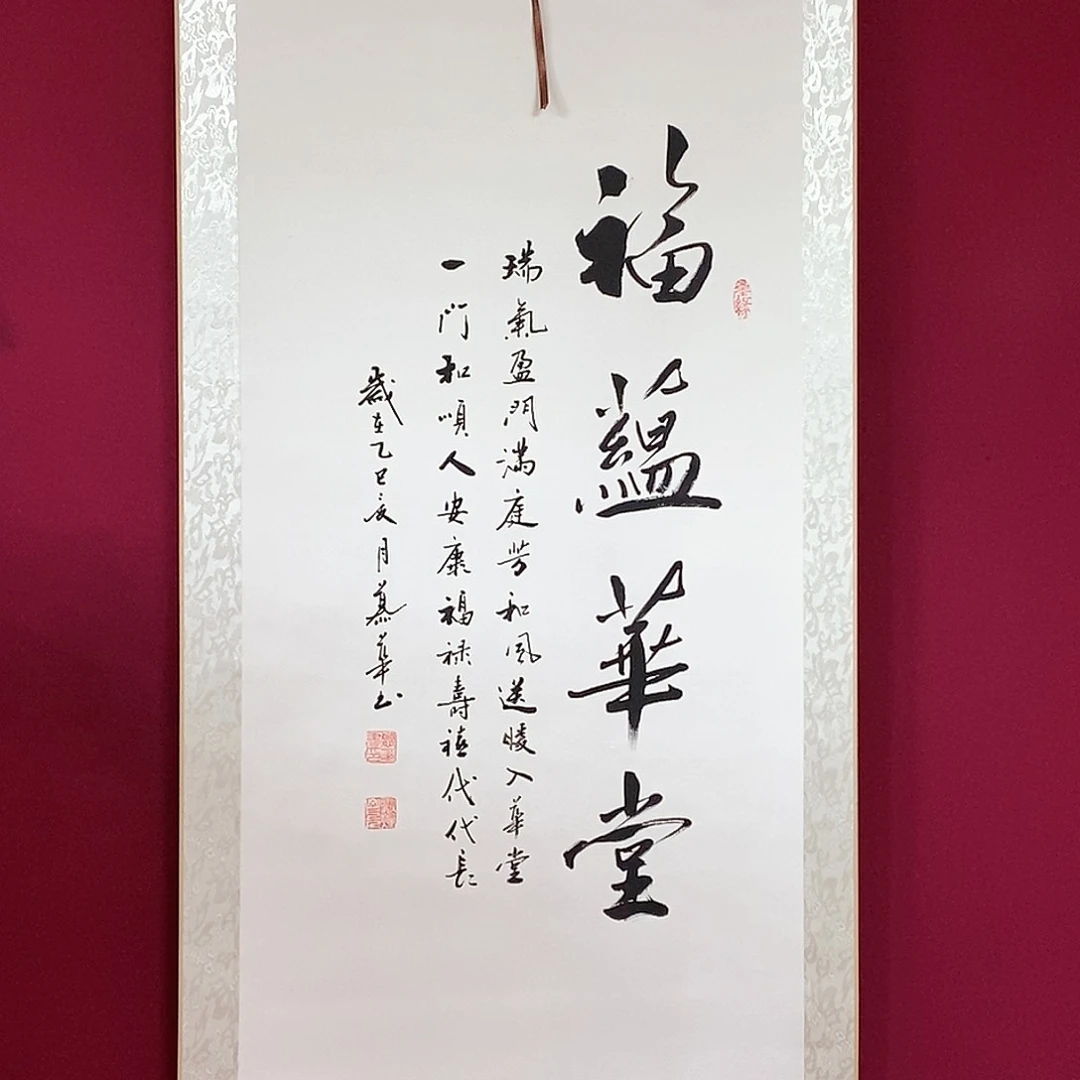 福蘊華堂
瑞氣盈門滿庭芳和風送暖入華堂
一門和順人安康福祿壽禧代代長
歲在乙巳亥月慕華书